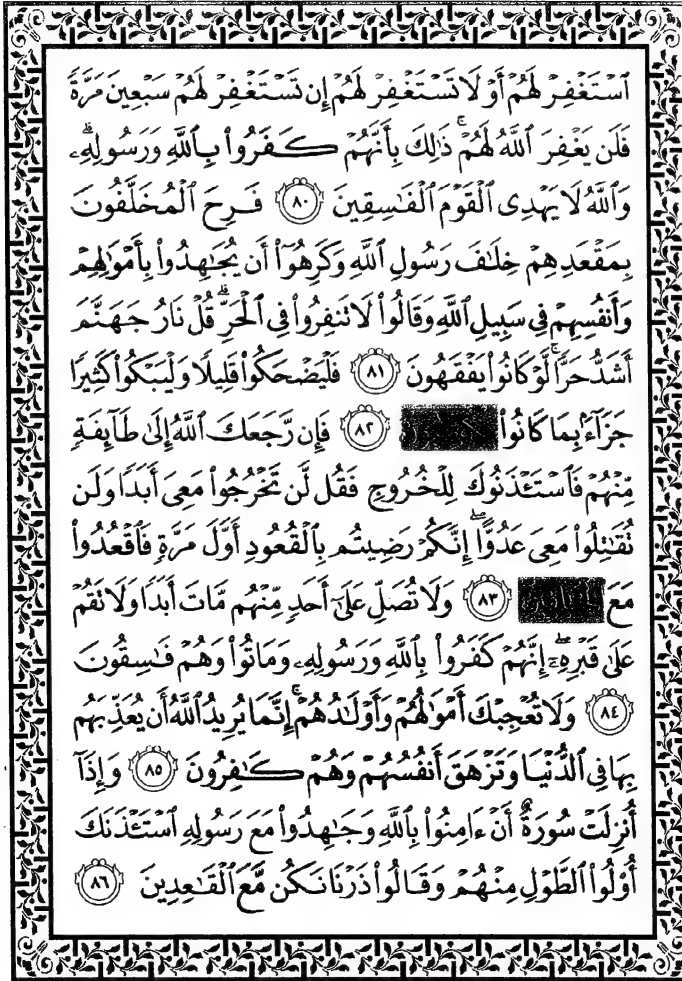 ٱسۡتَغۡفِرۡ لَهُمۡ أَوۡ لَا تَسۡتَغۡفِرۡ لَهُمۡ إِن تَسۡتَغۡفِرۡ لَهُمۡ سَبۡعِينَ مَرَّةٗ
فَلَن يَغۡفِرَ ٱللَّهُ لَهُمۡۚ ذَٰلِكَ بِأَنَّهُمۡ كَفَرُواْ بِٱللَّهِ وَرَسُولِهِۦۗ
وَٱللَّهُ لَا يَهۡدِي ٱلۡقَوۡمَ ٱلۡفَٰسِقِينَ ٨٠ فَرِحَ ٱلۡمُخَلَّفُونَ
بِمَقۡعَدِهِمۡ خِلَٰفَ رَسُولِ ٱللَّهِ وَكَرِهُوٓاْ أَن يُجَٰهِدُواْ بِأَمۡوَٰلِهِمۡ
وَأَنفُسِهِمۡ فِي سَبِيلِ ٱللَّهِ وَقَالُواْ لَا تَنفِرُواْ فِي ٱلۡحَرِّۗ قُلۡ نَارُ جَهَنَّمَ
أَشَدُّ حَرّٗاۚ لَّوۡ كَانُواْ يَفۡقَهُونَ ٨١ فَلۡيَضۡحَكُواْ قَلِيلٗا وَلۡيَبۡكُواْ كَثِيرٗا
جَزَآءَۢ بِمَا كَانُواْ ٨٢ فَإِن رَّجَعَكَ ٱللَّهُ إِلَىٰ طَآئِفَةٖ
مِّنۡهُمۡ فَٱسۡتَـٔۡذَنُوكَ لِلۡخُرُوجِ فَقُل لَّن تَخۡرُجُواْ مَعِيَ أَبَدٗا وَلَن
تُقَٰتِلُواْ مَعِيَ عَدُوًّاۖ إِنَّكُمۡ رَضِيتُم بِٱلۡقُعُودِ أَوَّلَ مَرَّةٖ فَٱقۡعُدُواْ
مَعَ ٨٣ وَلَا تُصَلِّ عَلَىٰٓ أَحَدٖ مِّنۡهُم مَّاتَ أَبَدٗا وَلَا تَقُمۡ
عَلَىٰ قَبۡرِهِۦٓۖ إِنَّهُمۡ كَفَرُواْ بِٱللَّهِ وَرَسُولِهِۦ وَمَاتُواْ وَهُمۡ فَٰسِقُونَ
٨٤ وَلَا تُعۡجِبۡكَ أَمۡوَٰلُهُمۡ وَأَوۡلَٰدُهُمۡۚ إِنَّمَا يُرِيدُ ٱللَّهُ أَن يُعَذِّبَهُم
بِهَا فِي ٱلدُّنۡيَا وَتَزۡهَقَ أَنفُسُهُمۡ وَهُمۡ كَٰفِرُونَ ٨٥ وَإِذَآ
أُنزِلَتۡ سُورَةٌ أَنۡ ءَامِنُواْ بِٱللَّهِ وَجَٰهِدُواْ مَعَ رَسُولِهِ ٱسۡتَـٔۡذَنَكَ
أُوْلُواْ ٱلطَّوۡلِ مِنۡهُمۡ وَقَالُواْ ذَرۡنَا نَكُن مَّعَ ٱلۡقَٰعِدِينَ ٨٦